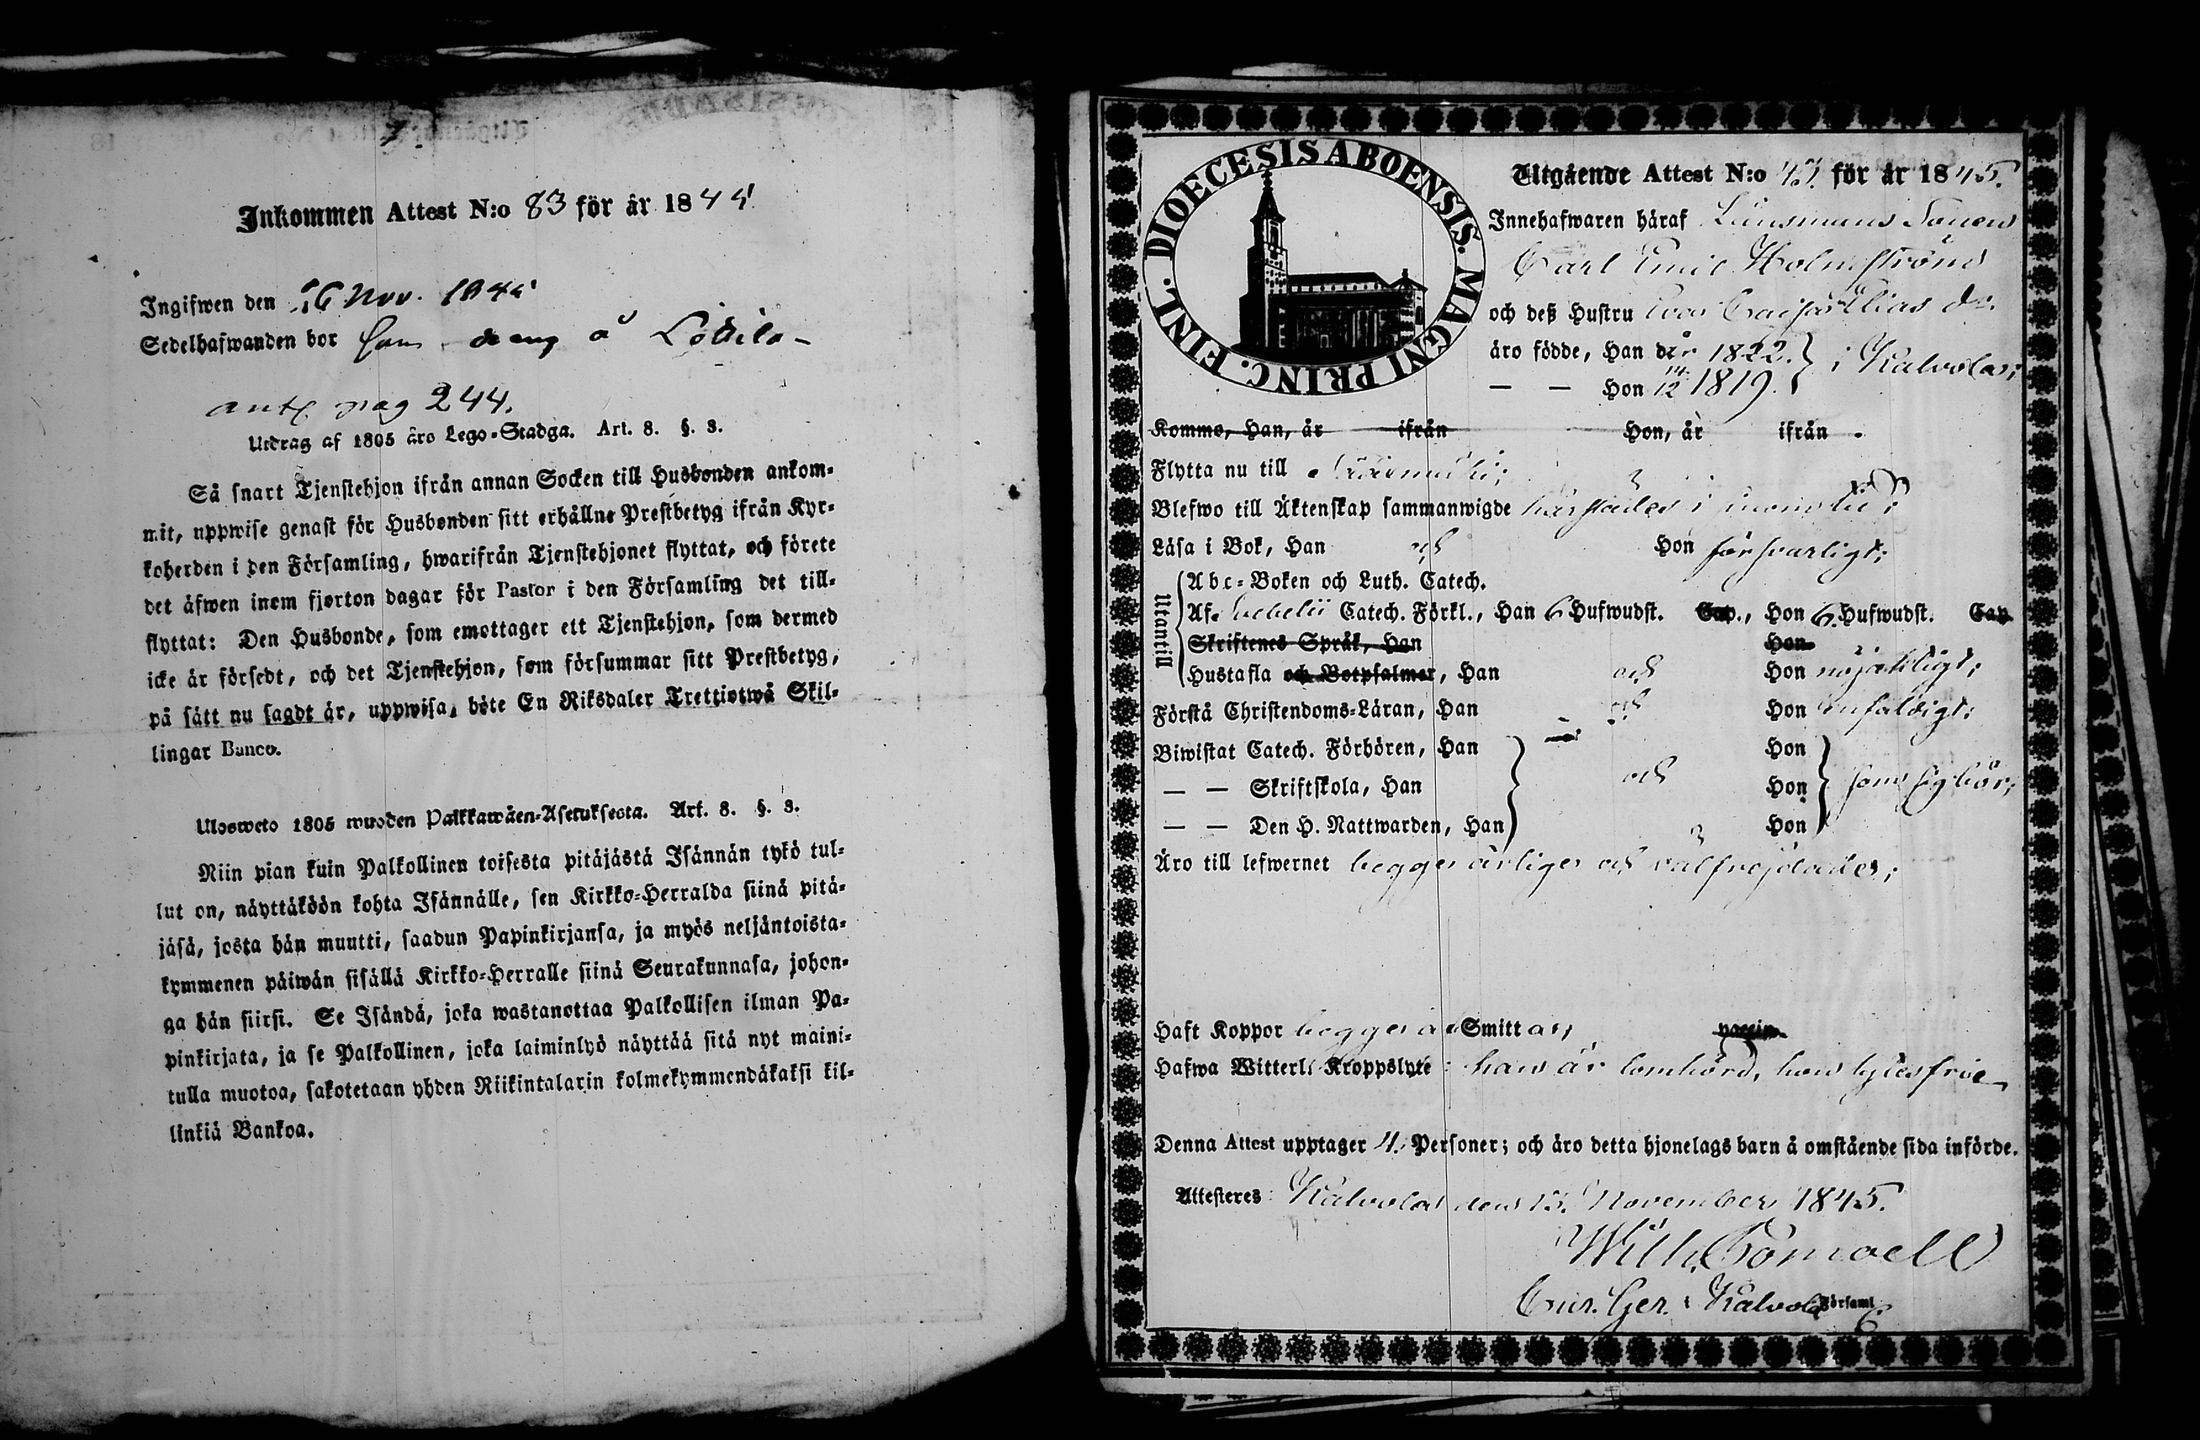 Inkommen Attest N:o 83 för år 1845
Ingifwen den 16 Nov. 1845
Sedelhafwanden bor som dräng å
ant. pag 244.
Utdrag af 1805 års Lego-Stadga. Art. 8. §. 3.
Så snart Tjenstehjon ifrån annan Socken till Husbonden ankom-
mit, uppwise genast för Husbonden sitt erhållne Prestbetyg ifrån Kyr-
koherden i den Församling, hwarifrån Tjenstehjonet flyttat, och förete
det äfwen inom fjorton dagar för Pastor i den Församling det till-
flyttat: Den Husbonde, som emottager ett Tjenstehjon, som dermed
icke är försedt, och det Tjenstehjon, som försummar sitt Prestbetyg,
på sätt nu sagdt är, uppwisa, böte En Riksdaler Trettiotwå Skil-
lingar Banco.
Ulosweto 1805 wuoden Palkkawäen-Asetuksesta. Art. 8. §. 3.
Niin pian kuin Palkollinen toisesta pitäjästä Isännän tykö tul-
lut on, näyttäköön kohta Isännälle, sen Kirkko-Herralda siinä pitä-
jäsä, josta hän muutti, saadun Papinkirjansa, ja myös neljäntoista-
kymmenen päiwän sisällä Kirkko-Herralle siinä Seurakunnasa, johon-
ga hän siirsi. Se Isändä, joka wastanottaa Palkollisen ilman Pa-
pinkirjata, ja se Palkollinen, joka laiminlyö näyttää sitä nyt maini-
tulla muotoa, sakotetaan yhden Riikintalarin kolmekymmendäkaksi kil-
linkiä Bankoa.
DIOECESIS ABOENSIS. MAGNI PRINC. FINL.
Utgående Attest N:o 43. för år 1845.
Innehafwaren häraf Länsmans Sonen
Carl Emil Holmström
och deß Hustru Eva Caisa dr.
äro födde, Han år 1822. } i Kalvola;
— — Hon 14/12 1819.
Komme, Han, år ifrån Hon, år ifrån
Flytta nu till Sääxmäki;
Blefwo till Äktenskap sammanwigde härstädes i
Läsa i Bok, Han och Hon försvarligt;
Utantill
Abc-Boken och Luth. Catech.
Af Svebelii Catech. Förkl., Han 6 Hufwudst. Cap., Hon 6. Hufwudst. Cap.
Skriftenes Språk, Han Hon
Hustafla och Botpsalmer, Han och Hon nöjaktligt;
Förstå Christendoms-Läran, Han och Hon enfaldigt;
Biwistat Catech. Förhören, Han Hon
— — Skriftskola, Han och Hon som sig bör;
— — Den H. Nattwarden, Han Hon
Äro till lefwernet begge ärlige och välfrejdade;
Haft Koppor begge äro Smittas; vaccin.
Hafwa Witterl. Kroppslyte: han är lomhörd, hon lytesfri
Denna Attest upptager 4. Personer; och äro detta hjonelags barn å omstående sida införde.
Attesteres: Kalvola den 15. November 1845.
Wilh. Forssell
Cur. Ger. i Kalvola Församl.